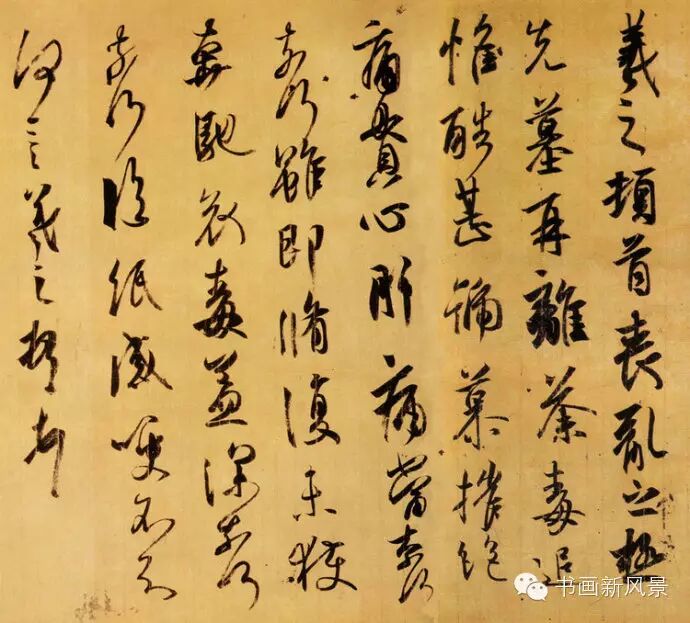 羲之頓首喪亂之極
先墓再離荼毒追
惟酷甚號慕摧絕
痛貫心肝痛當奈何
奈何雖即脩復未獲
奔馳哀毒益深奈何
奈何臨紙感哽不知
何言羲之頓首頓首
书画新风景